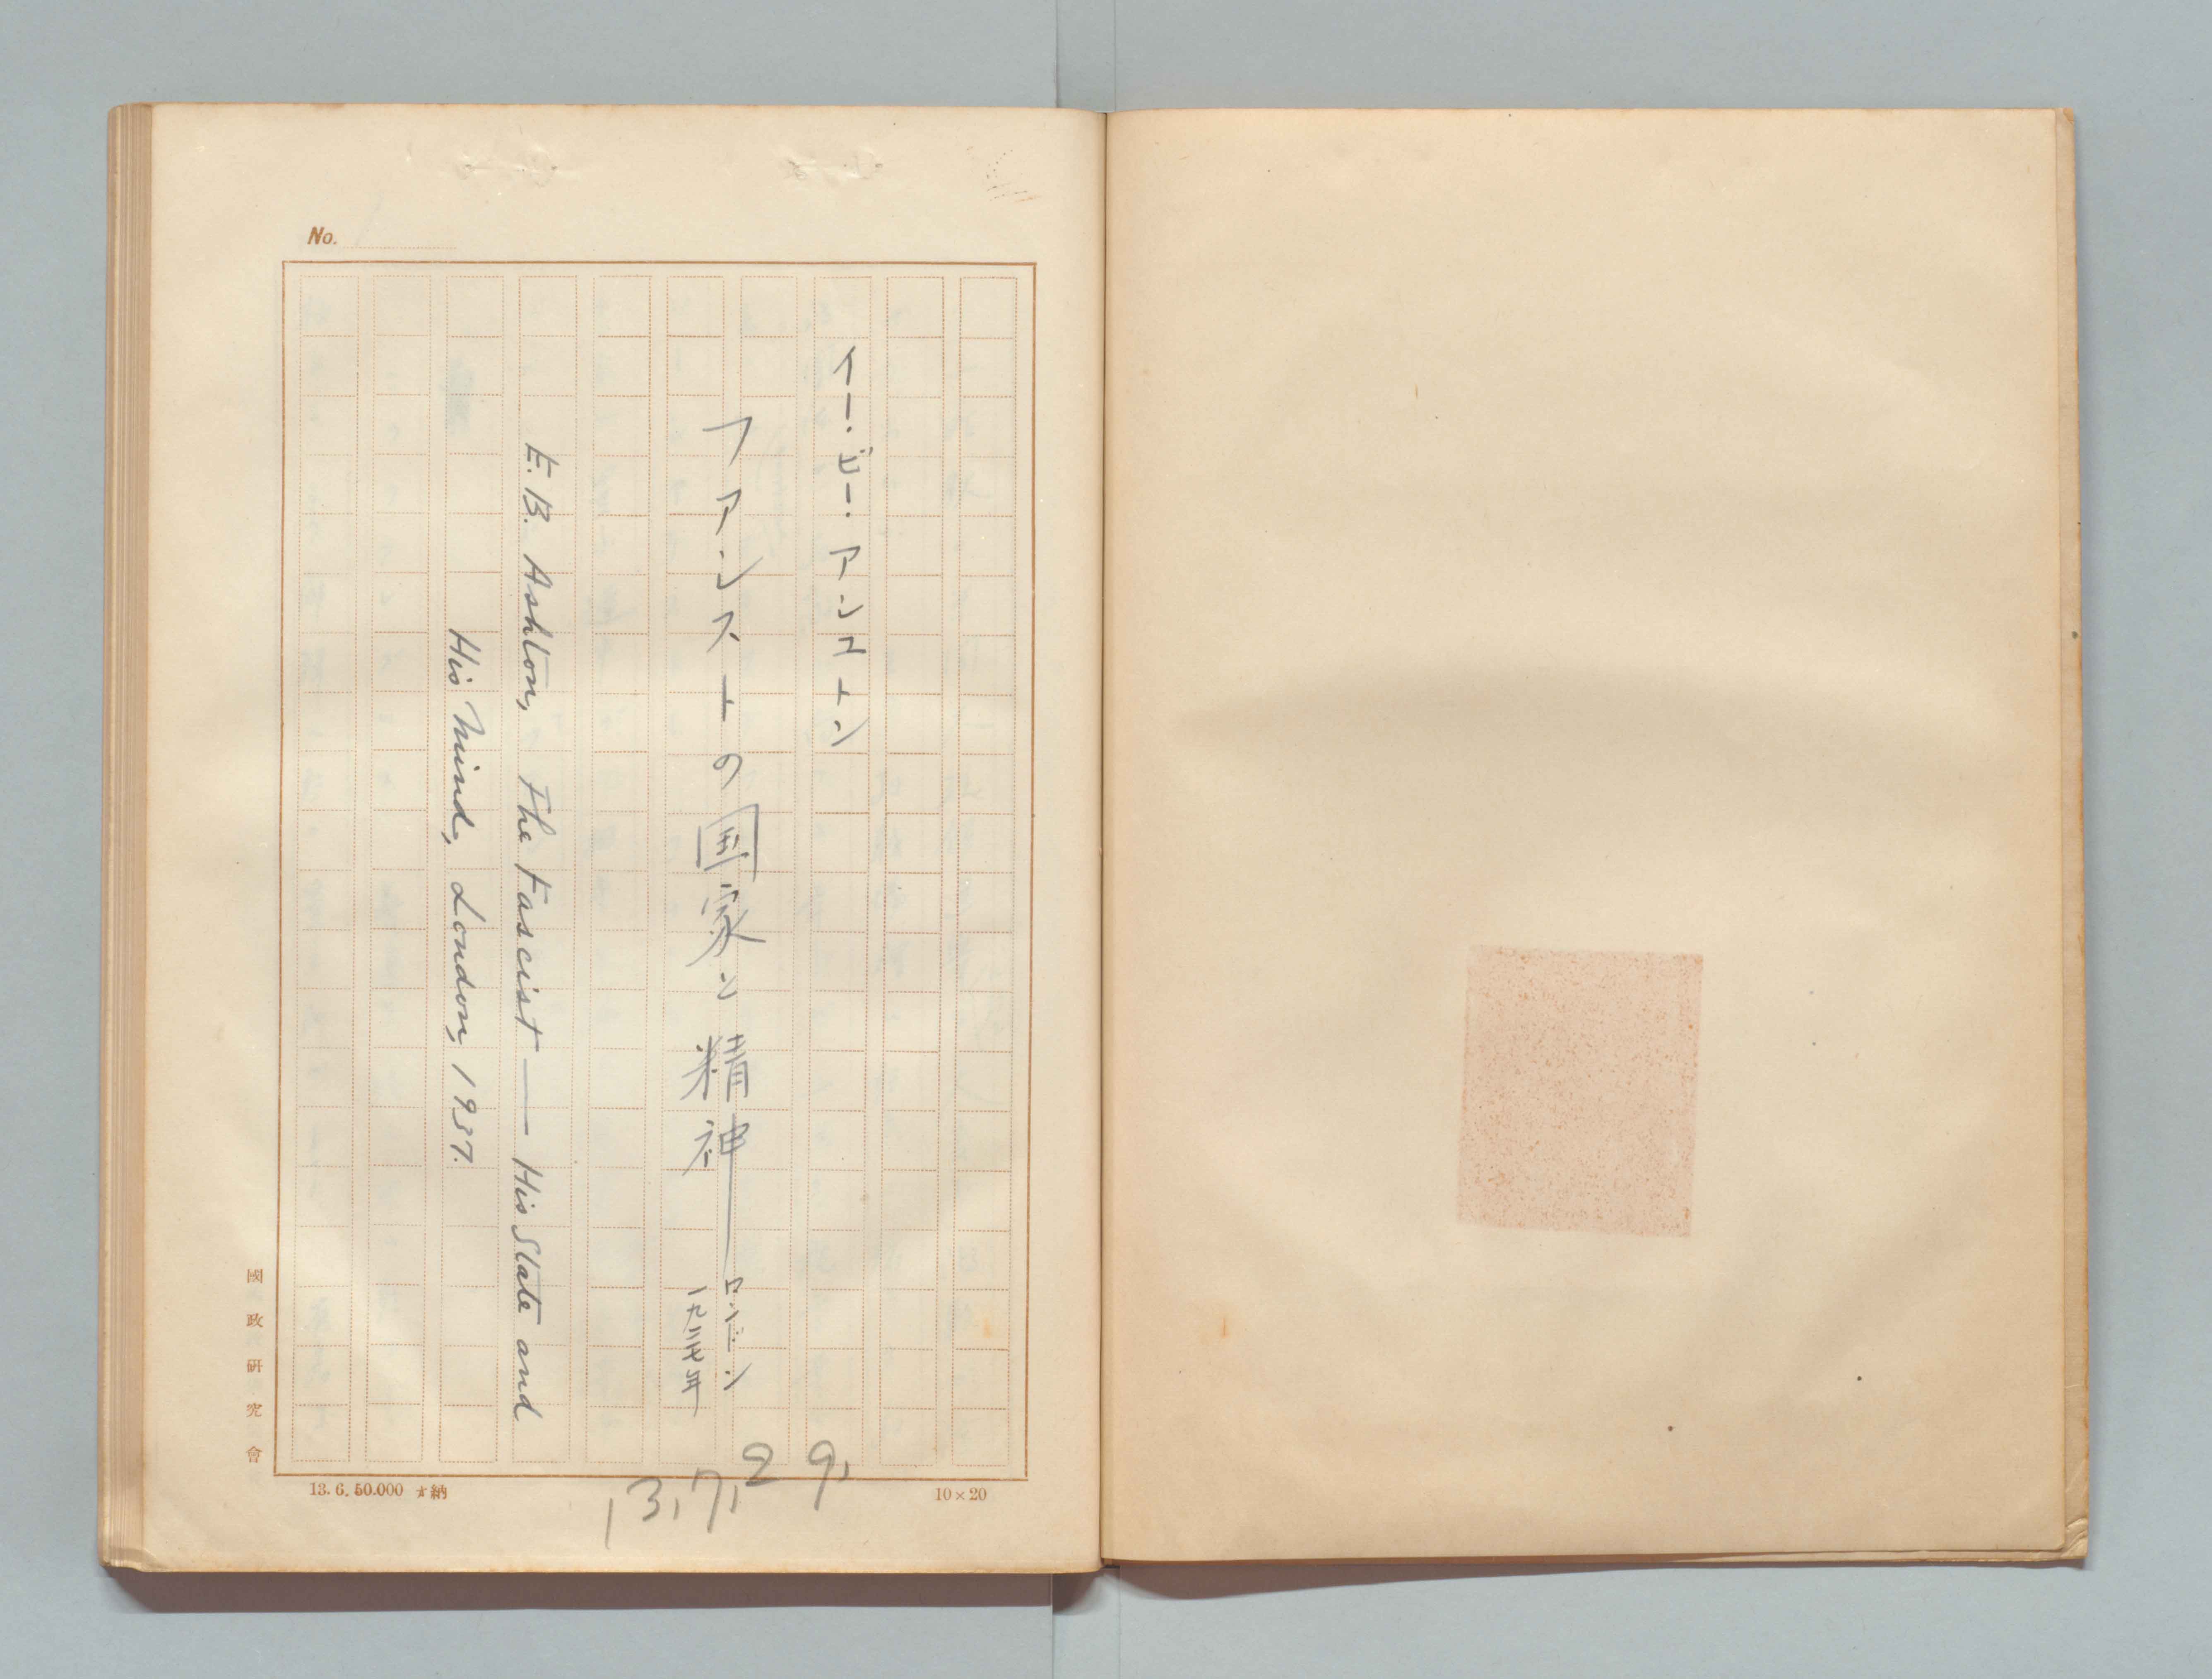 No.
イー・ビー・アシュトン
ファシストの国家と精神——ロンドン
一九三七年
E. B. Ashton, The Fascist — His State and
His Mind, London, 1937.
13,7,29,
國政研究會
13.6.50.000 納
10×20